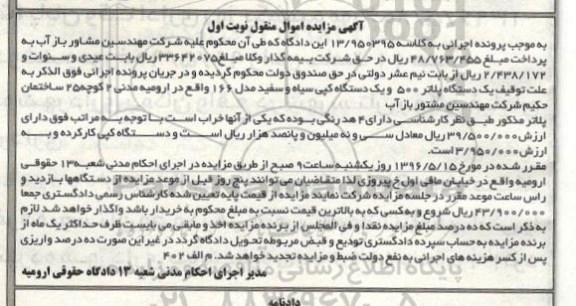 آگهی مزایده اموال منقول نوبت اول
به موجب پرونده اجرائی به کلاسه ۱۳/۹۵۰۳۹۵ این دادگاه که طی آن محکوم علیه شرکت مهندسین مشاور باز آب به
پرداخت مبلغ ۴۸/۷۶۳/۴۵۵ ریال در حق شرکت بیمه گذار وکلا مبلغ ۳۳۶۴۲۰۷۵ ریال بابت عیدی و سنوات و
۲/۴۳۸/۱۷۲ ریال از بابت نیم عشر دولتی در حق صندوق دولت محکوم گردیده و در جریان پرونده اجرائی فوق الذکر به
علت توقیف یک دستگاه پلاتر ۵۰۰ و یک دستگاه کپی سیاه و سفید مدل ۱۶۶ واقع در ارومیه مدنی ۲ کوچه ۲۵ ساختمان
حکیم شرکت مهندسین مشتور باز آب
پلاتر مذکور طبق نظر کارشناسی دارای ۴ هد رنگی بوده که یکی از آنها خراب است با توجه به مراتب فوق دارای
ارزش ۳۹/۵۰۰/۰۰۰ ریال معادل سی و نه میلیون و پانصد هزار ریال است و دستگاه کپی کارکرده و به
ارزش ۳/۹۵۰/۰۰۰ است.
مقرر شده در مورخ ۱۳۹۶/۵/۱۵ روز یکشنبه ساعت ۹ صبح از طریق مزایده در اجرای احکام مدنی شعبه ۱۳ حقوقی
ارومیه واقع در خیابان مافی اول خ پیروزی لذا متقاضیان می توانند پنج روز قبل از موعد مزایده از دستگاهها بازدید و
راس ساعت موعد مقرر در جلسه مزایده شرکت نمایند مزایده از قیمت پایه تعیین شده کارشناس رسمی دادگستری جمعا
۴۳/۹۰۰/۰۰۰ ریال شروع و به کسی که به بالاترین قیمت نسبت به مبلغ محکوم به خریدار باشد واگذار خواهد شد لازم
به ذکر است که ده درصد مبلغ مزایده نقدا و فی المجلس از برنده مزایده اخذ و مابقی می بایست ظرف حداکثر یک ماه از
برنده مزایده به حساب سپرده دادگستری تودیع و قبض مربوطه تحویل دادگاه گردد در غیر این صورت ده درصد واریزی
پس از کسر هزینه های اجرائی به نفع دولت ضبط و مزایده تجدید خواهد شد. م الف ۴۰۲
مدیر اجرای احکام مدنی شعبه ۱۳ دادگاه حقوقی ارومیه
دادنامه